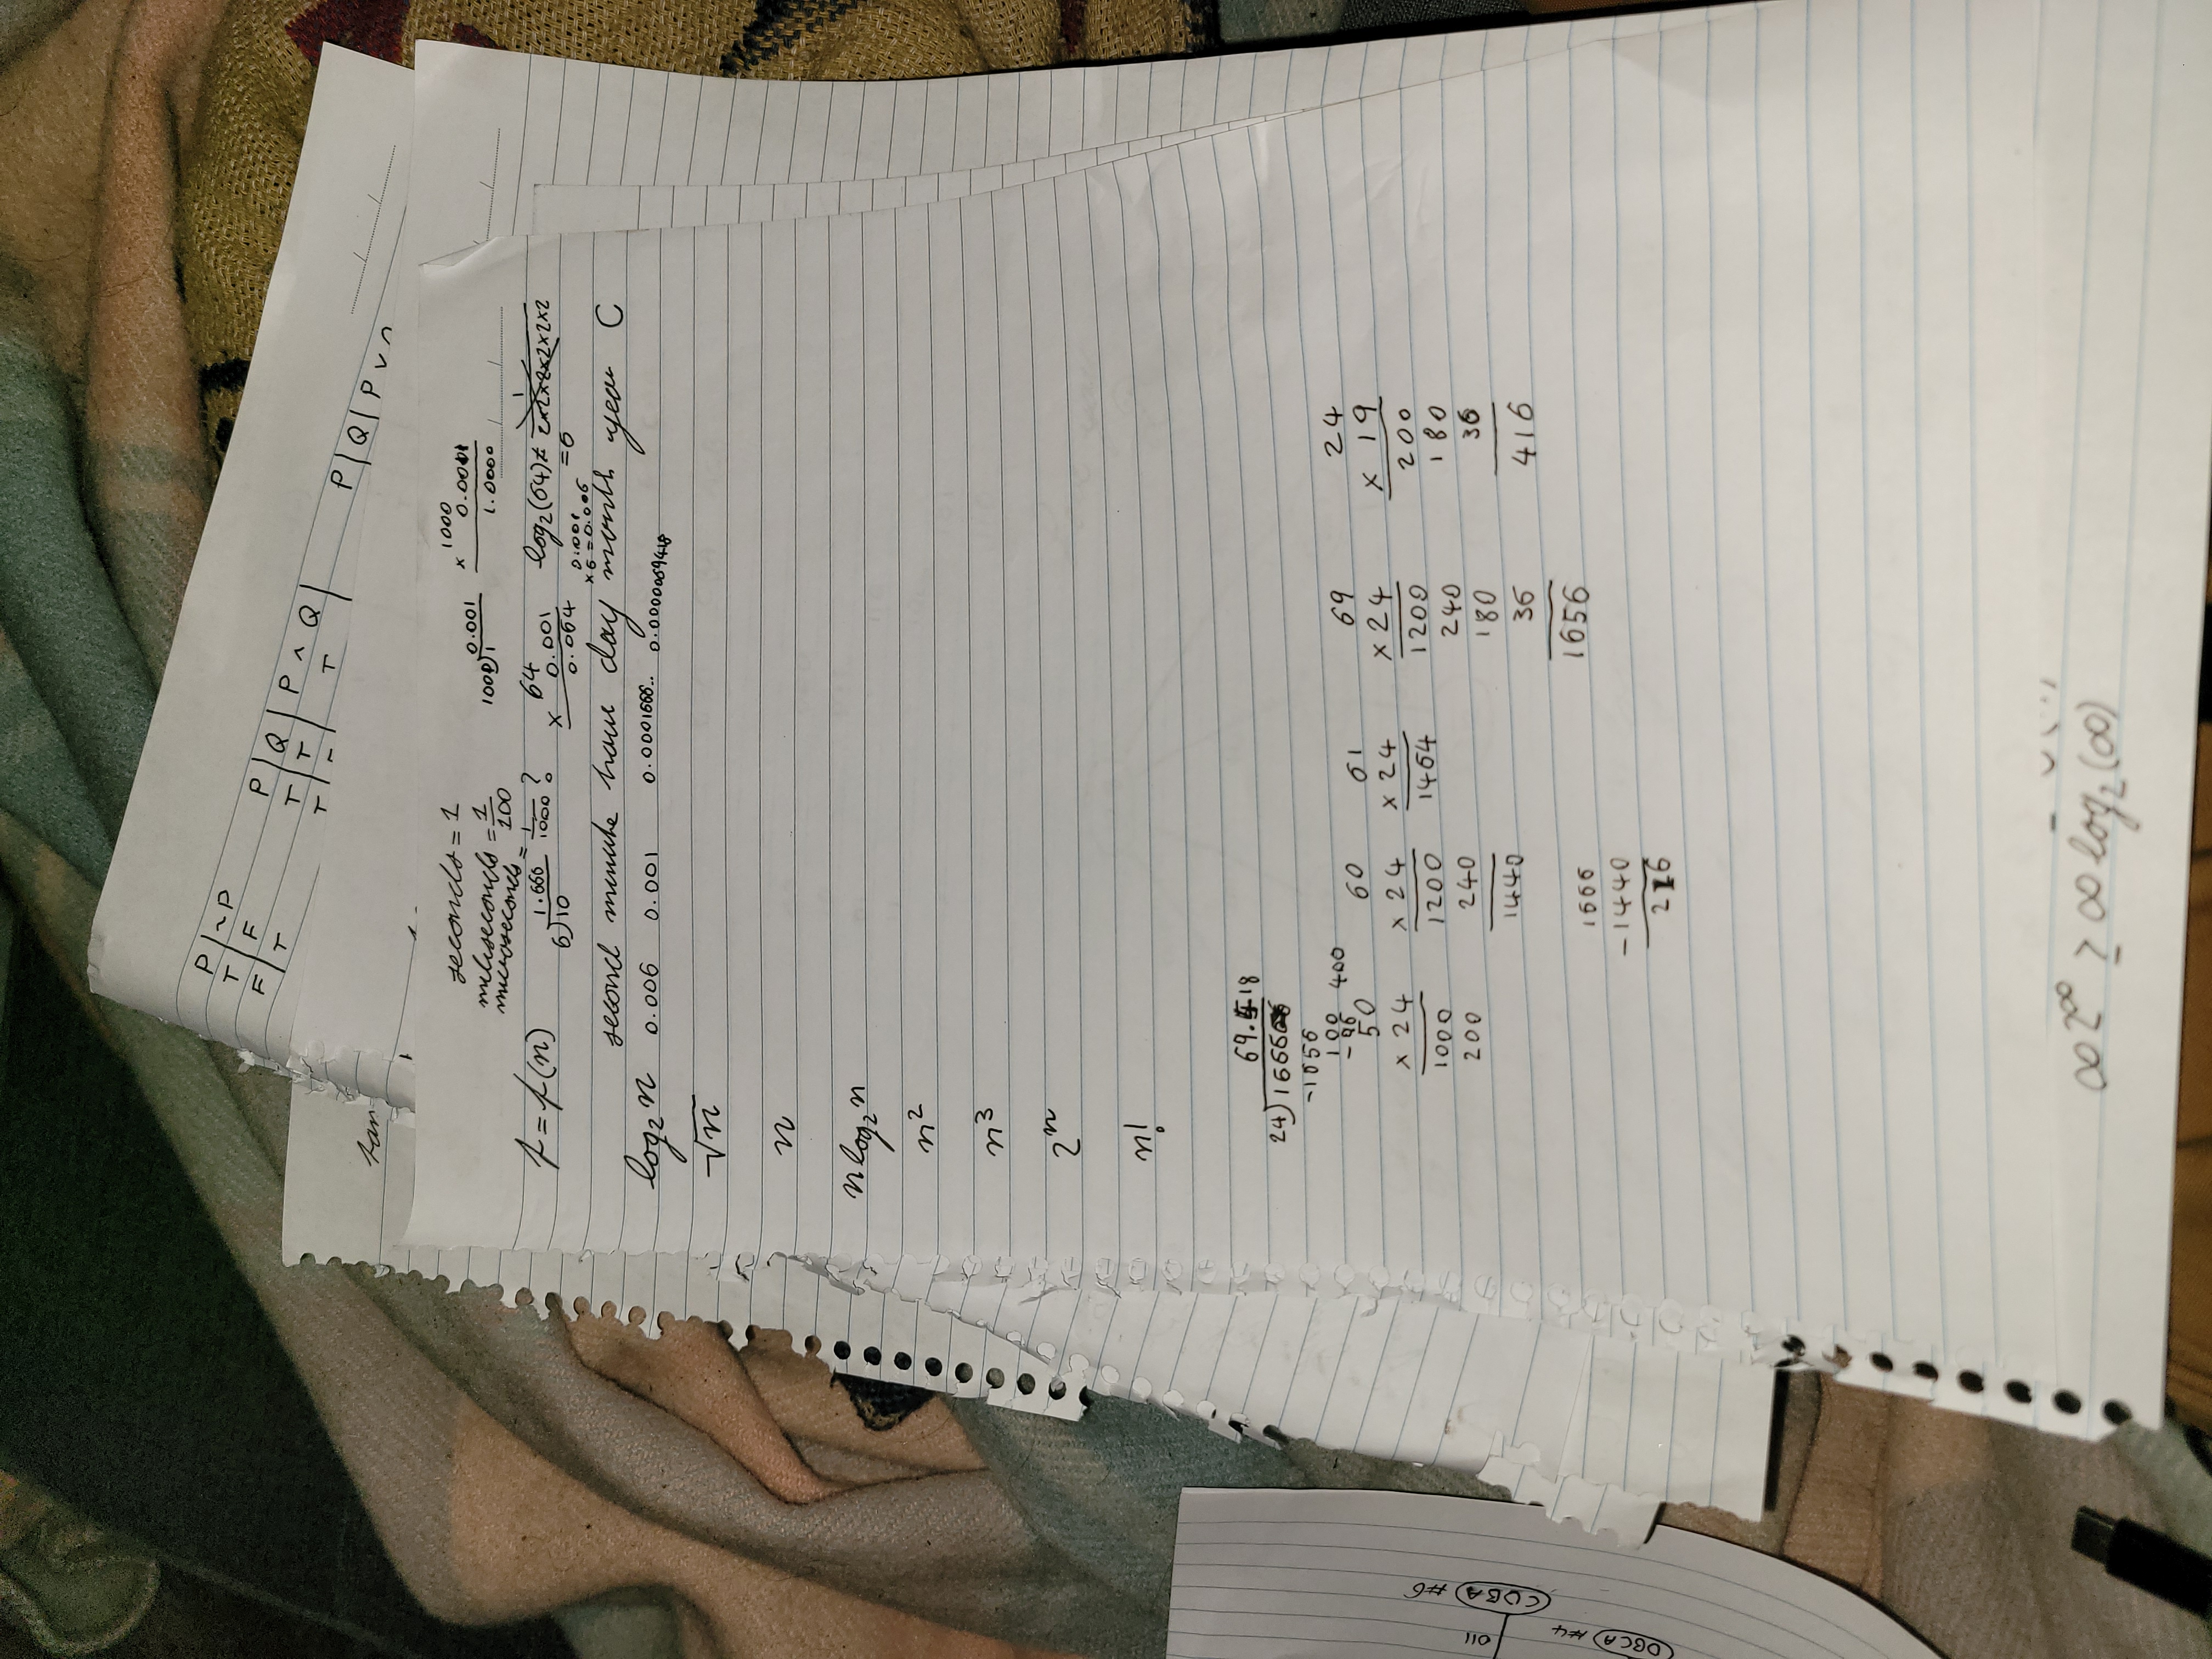 P | ~P
T | F
F | T
P | Q | P ∧ Q |
T | T | T
T
P | Q | P ∨
tan
seconds = 1
miliseconds = 1/100
microseconds = 1/1000 ?
0.001
1000)1
1000
× 0.001
1.0000
f = f(n)
1.666
6)10
64
× 0.001
0.064
log₂(64) ≠ 1/2×2×2×2×2×2
= 6
0.001
×6 = 0.006
second minute hour day month year C
log₂n 0.006 0.001 0.0001666.. 0.0000069418
√n
n
nlog₂n
n²
n³
2ⁿ
n!
69.418
24)1666
-1656
100 400
-96
50
× 24
1000
200
60
× 24
1200
240
1440
61
× 24
1464
69
× 24
1200
240
180
36
1656
24
× 19
200
180
36
416
1666
-1440
216
∞2^∞ ≥ ∞log₂(∞)
011
CDBA #6
DBCA #4